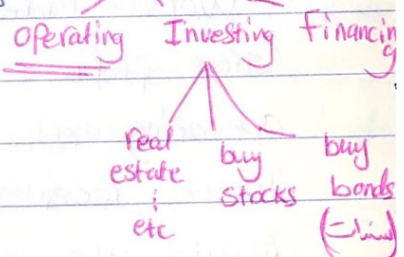 Operating Investing Financing
real estate
⋮
etc
buy stocks
buy bonds
(سندات)